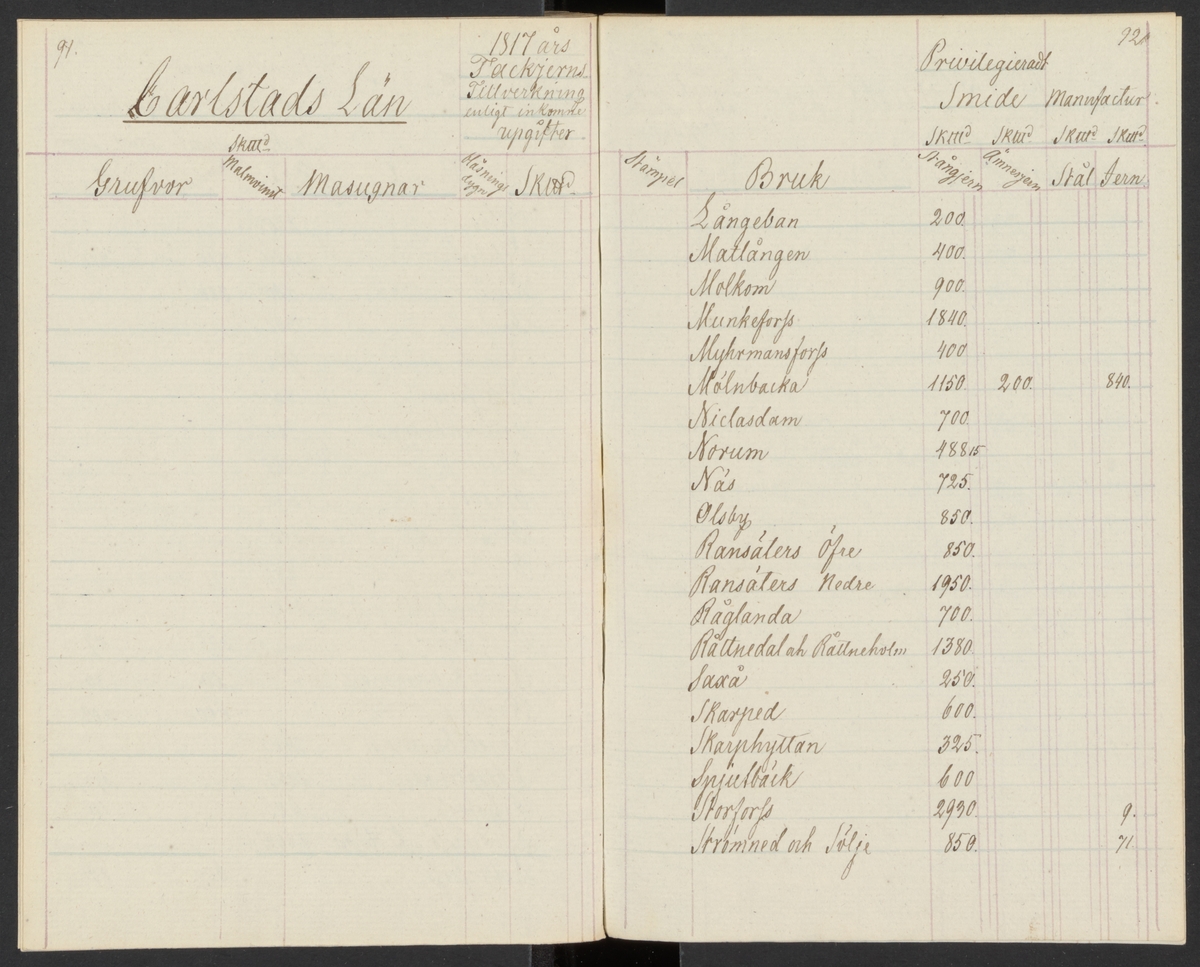 91.
Carlstads Län
1817 års
Tackjerns
Tillverkning
enligt inkomne
upgifter
Skttd
Grufvor
Malmvinst
Masugnar
Blåsnings
dygn
Skttd
92.
Privilegieradt
Smide Manufactur.
Skttd Skttd Skttd Skttd
Stämpel
Bruk
Stångjern
Ämnesjern
Stål Jern
Långeban 200.
Matlången 400.
Molkom 900.
Munkeforss 1840.
Myhrmansforss 400
Mölnbacka 1150. 200. 840.
Niclasdam 700.
Norum 488 15
Näs 725.
Olsby 850.
Ransäters Öfre 850.
Ransäters Nedre 1950.
Råglanda 700.
Råttnedal och Råttneholm 1380.
Saxå 250.
Skarped 600.
Skarphyttan 325.
Spjutbäck 600
Storforss 2930. 9.
Strömned och Sölje 850. 71